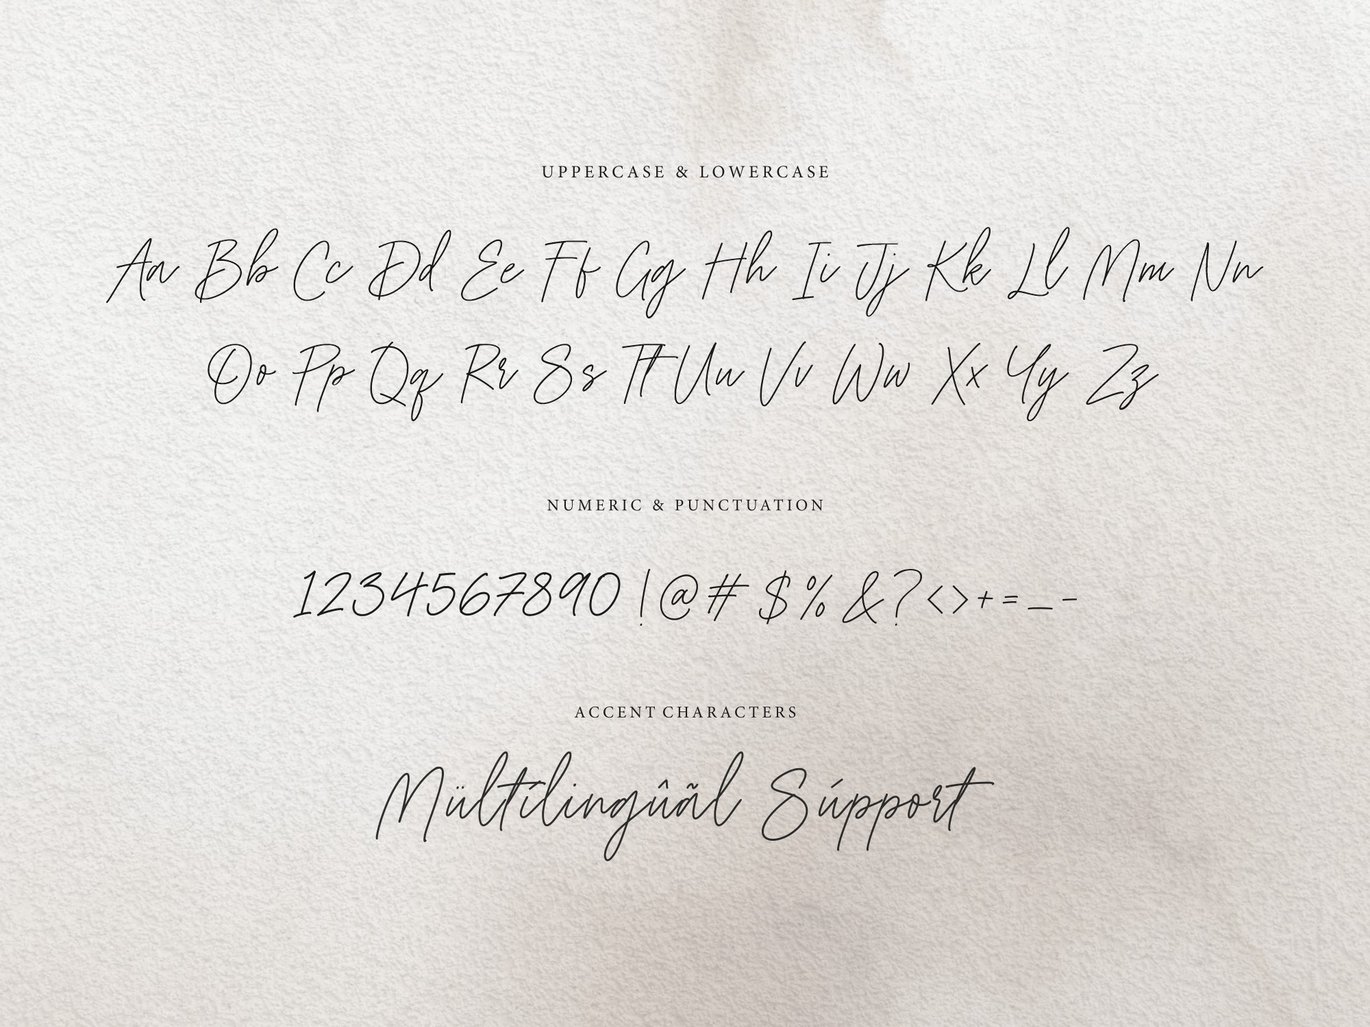 UPPERCASE & LOWERCASE
Aa Bb Cc Dd Ee Ff Gg Hh Ii Jj Kk Ll Mm Nn
Oo Pp Qq Rr Ss Tt Uu Vv Ww Xx Yy Zz
NUMERIC & PUNCTUATION
1234567890 !@# $% &?<>+=_-
ACCENT CHARACTERS
Mültílingûãl Súpport